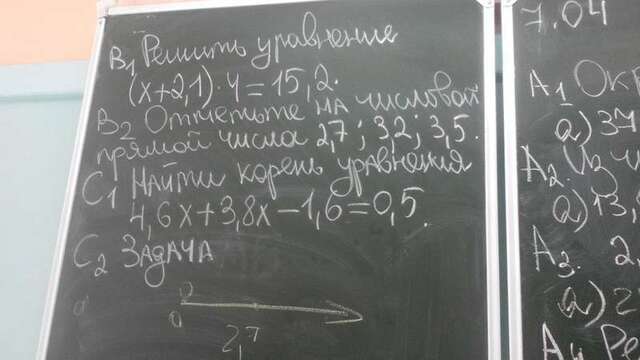 B1 Решить уравнение
(x+2,1)·4=15,2.
B2 Отметьте на числовой
прямой числа 2,7; 3,2; 3,5.
C1 Найти корень уравнения
4,6x+3,8x-1,6=0,5.
C2 Задача
0
2,7
7.04
A1
а) 37
A2 Из
а) 13,
A3. 2,
а) 2
A4